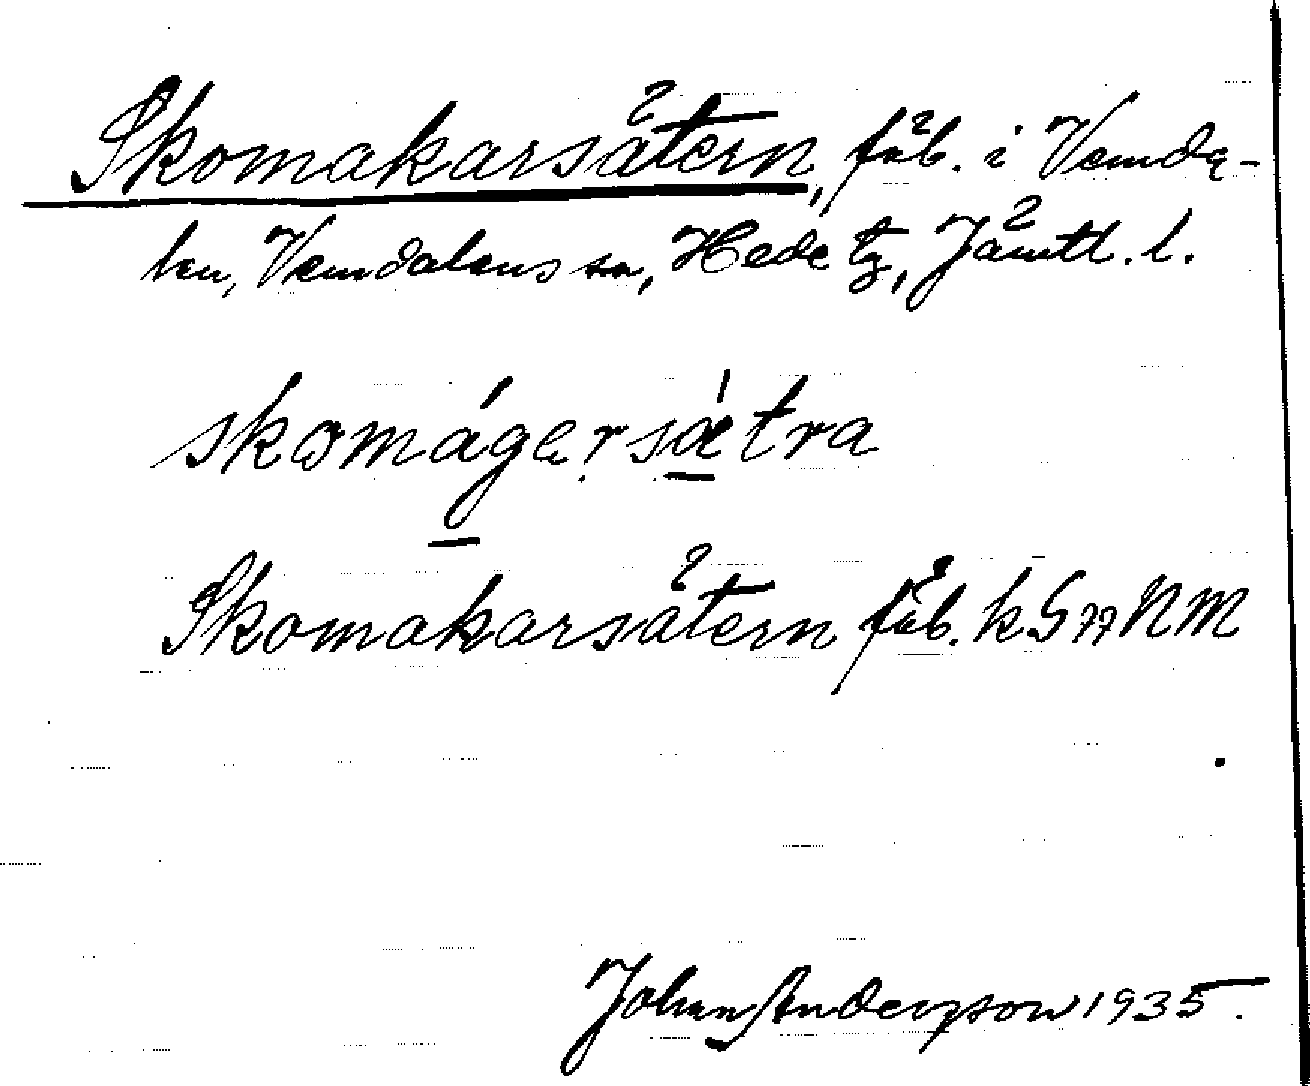 Skomakarsätern, fäb. i Vemda-
len, Vemdalens sn, Hede tg, Jämtl. l.
skomágersǽtra
Skomakarsätern fäb. k G 77 NM
Johan Anderzson 1935.